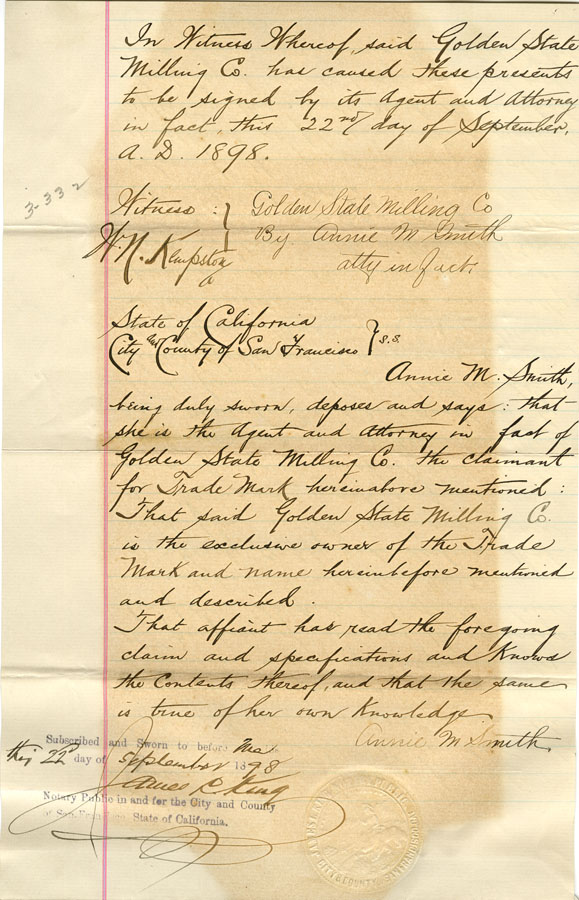 In Witness Whereof, said Golden State
Milling Co. has caused these presents
to be signed by its Agent and Attorney
in fact, this 22nd day of September,
A. D. 1898.
3-332
Witness : } Golden State Milling Co
H. N. Kempston By Annie M Smith
atty in fact.
State of California
City and County of San Francisco } s.s.
Annie M. Smith,
being duly sworn, deposes and says: that
she is the Agent and Attorney in fact of
Golden State Milling Co. the claimant
for Trade Mark hereinabove mentioned:
That said Golden State Milling Co.
is the exclusive owner of the Trade
Mark and name hereinbefore mentioned
and described.
That affiant has read the foregoing
claim and specifications and knows
the Contents thereof, and that the same
is true of her own Knowledge
Annie M Smith.
Subscribed and Sworn to before me
this 22d day of September 1898
King
Notary Public in and for the City and County
of San Francisco, State of California.
CITY & COUNTY